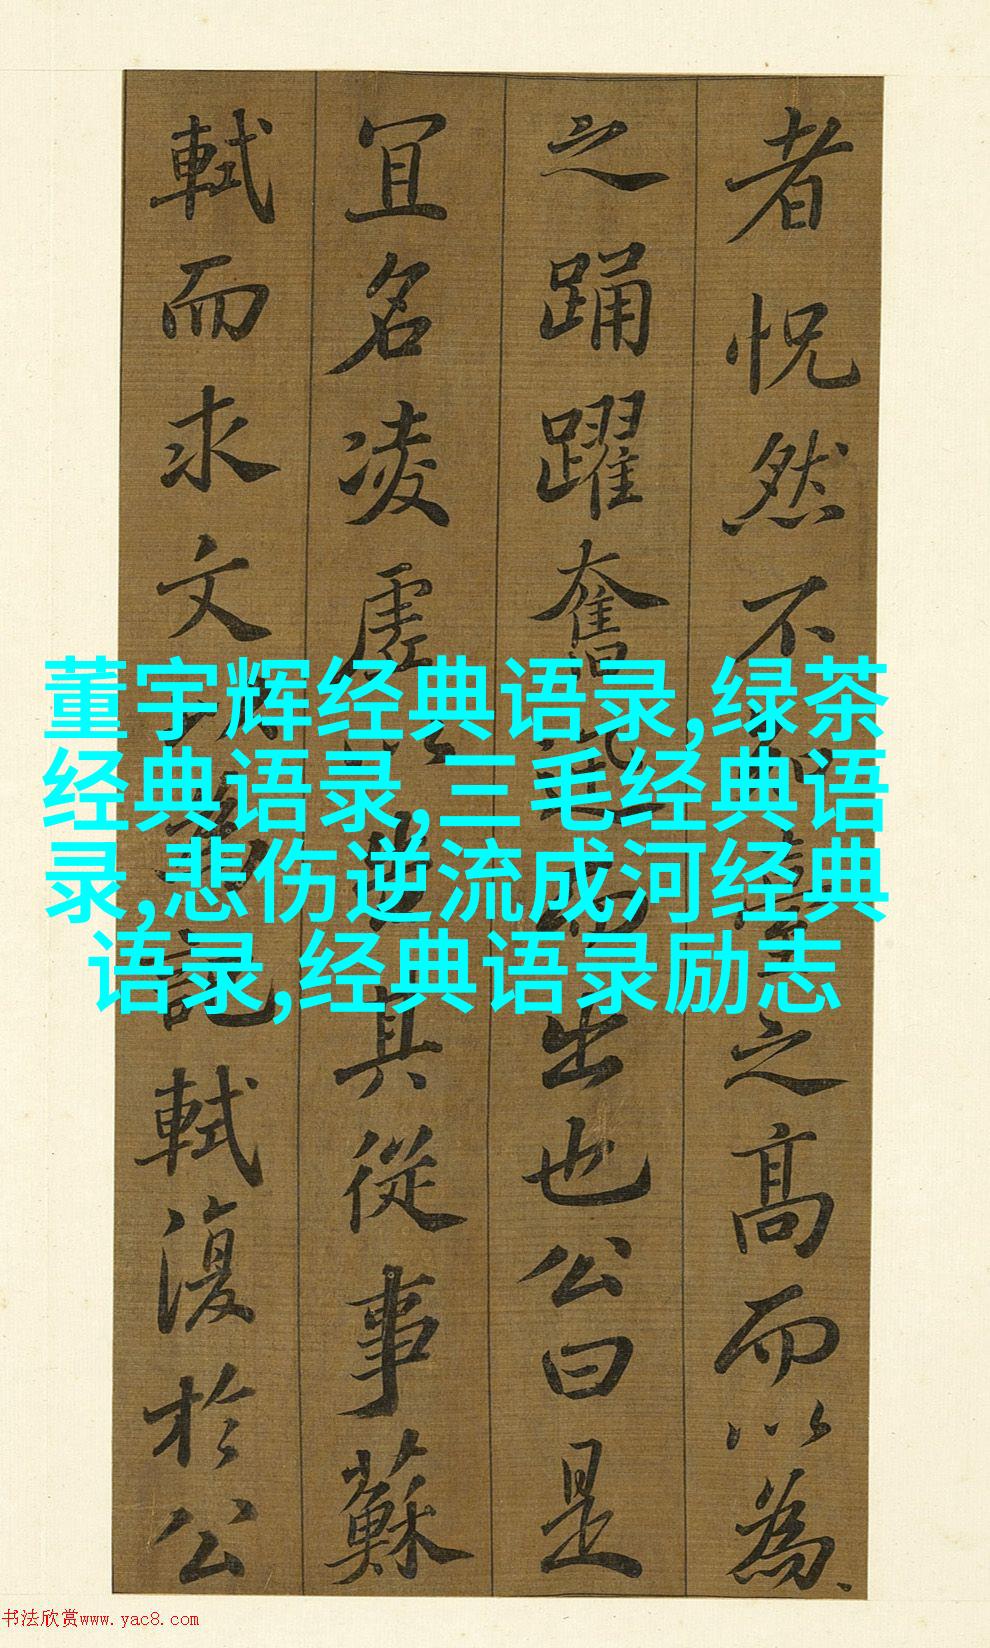 者怳然不知臺之高而以為
之踊躍奮迅而出也公曰是
冝名凌虛以告其從事蘇
軾而求文以為記軾復於公
董宇辉经典语录,绿茶
经典语录,三毛经典语
录,悲伤逆流成河经典
语录,经典语录励志
书法欣赏www.yac8.com